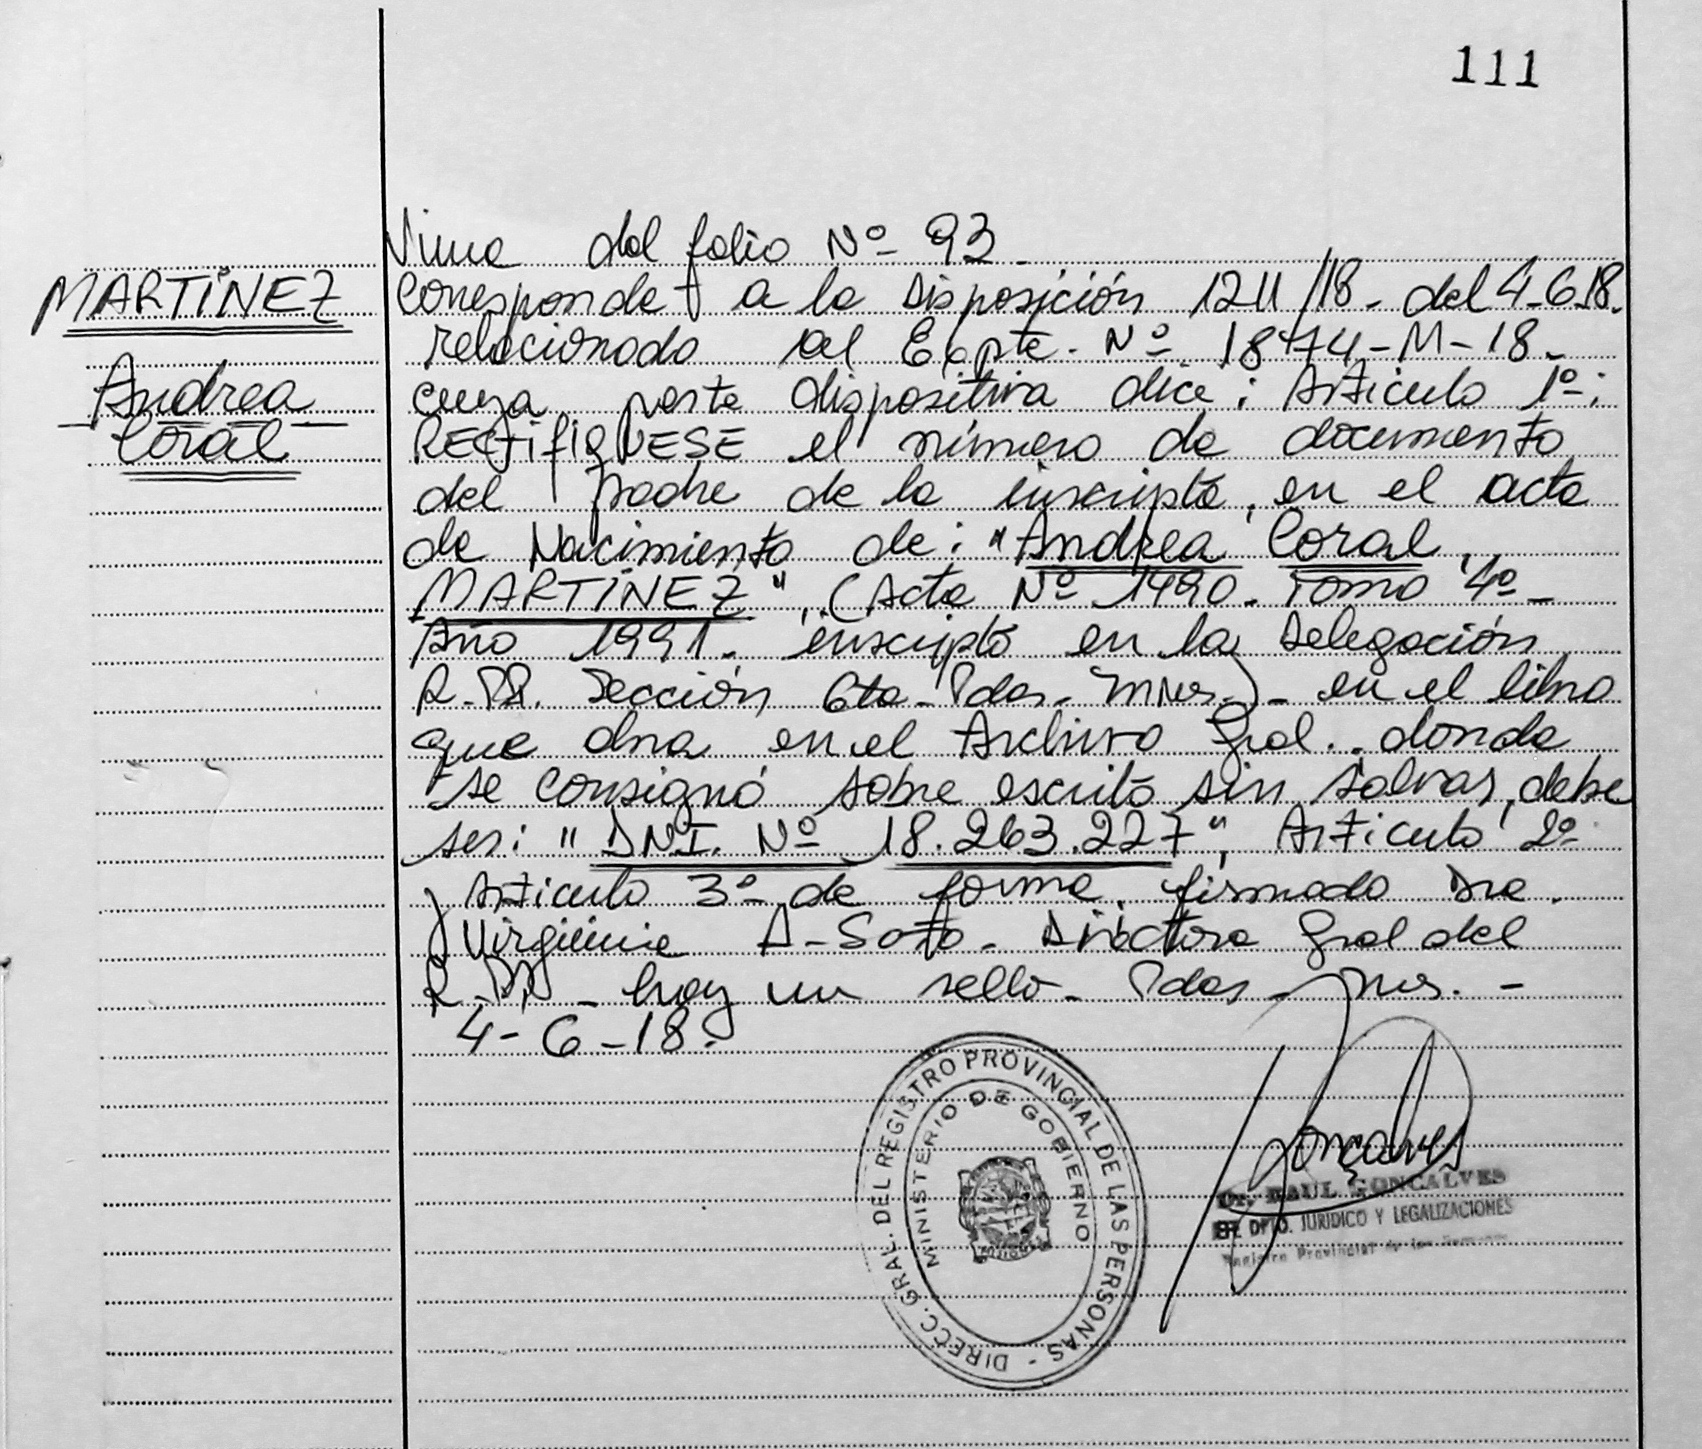 111
Viene del folio Nº 93.
MARTÍNEZ
Andrea
Coral
Corresponde a la Disposición 1211/18. del 4-6-18.
relacionado al Expte. Nº 1874-M-18.
cuya parte dispositiva dice: Artículo 1º:
RECTIFIQUESE el número de documento
del padre de la inscripta, en el acta
de Nacimiento de: "Andrea Coral
MARTÍNEZ", (Acta Nº 1990. Tomo 4º-
Año 1991. inscripto en la Delegación
R.PP. Sección 6ta- Pdas. Mnes.)- en el libro
que obra en el Archivo Gral.. donde
se consignó sobre escrito sin salvar, debe
ser: "DNI. Nº 18.263.227", Artículo 2º
y Artículo 3º de forma, firmado Dra.
Virginia A-Soto- Directora Gral del
R.PP- hay un sello- Pdas- Mnes.-
4-6-18.
DIRECC. GRAL. DEL REGISTRO PROVINCIAL DE LAS PERSONAS -
MINISTERIO DE GOBIERNO
Misiones
Goncalves
Dr. RAUL GONCALVES
DPTO. JURIDICO Y LEGALIZACIONES
Registro Provincial de las Personas